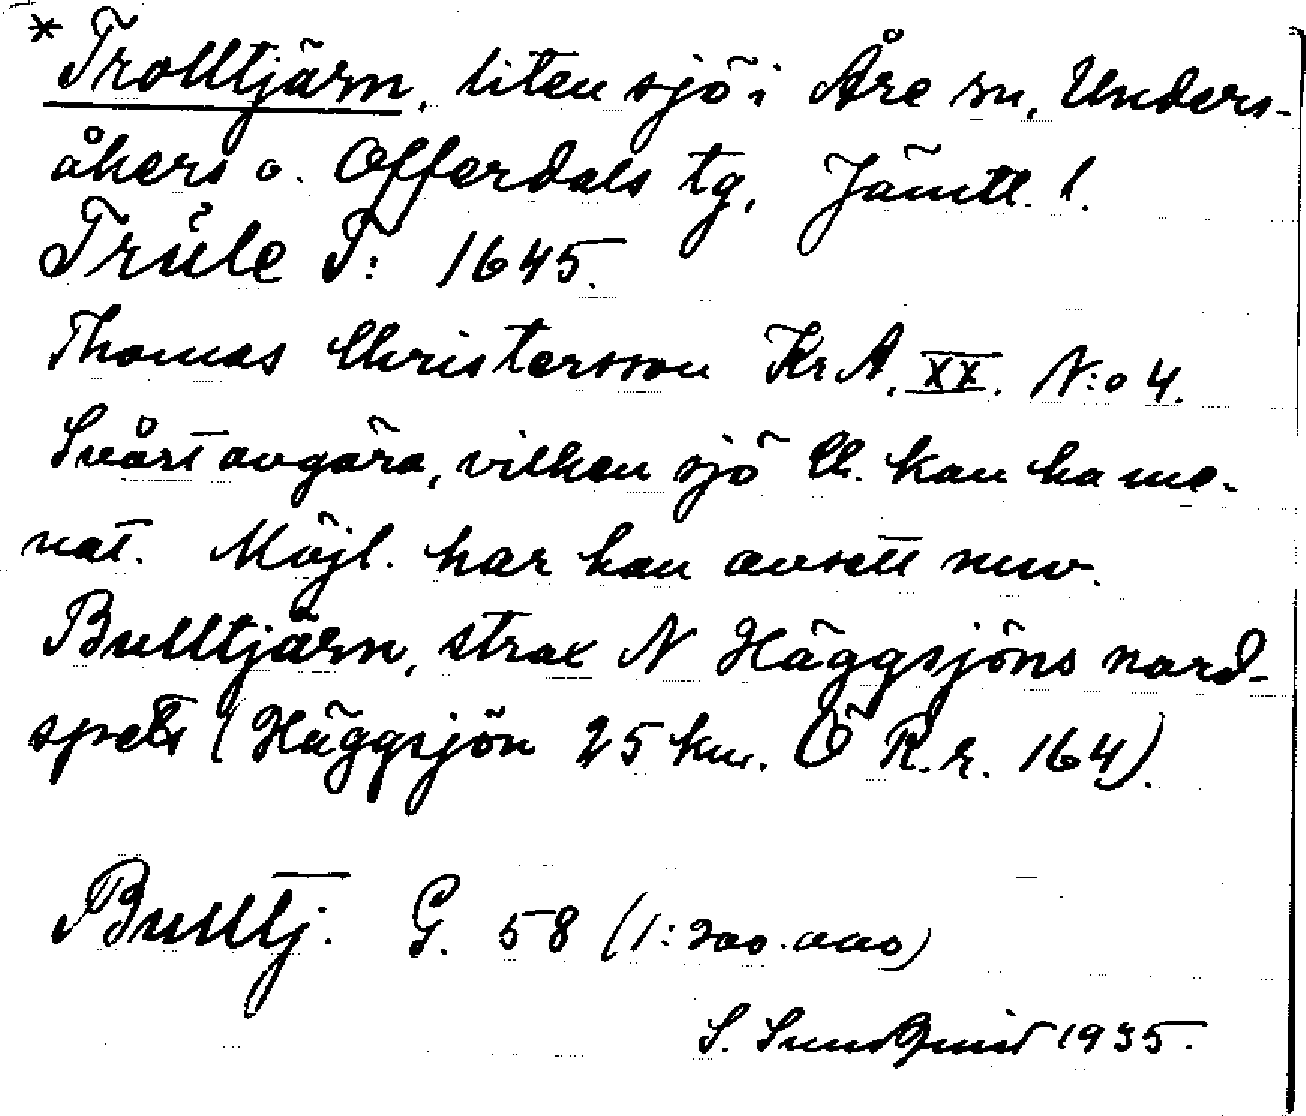 *Trolltjärn, liten sjö i Åre sn, Unders-
åkers o. Offerdals tg, Jämtl. l.
Trůle T: 1645.
Thomas Christersson Kr A. XX. N:o 4.
Svårt avgöra, vilken sjö Ch. kan ha me-
nat. Möjl. har han avsett nuv.
Bulltjärn, strax N Häggsjöns nord-
spets (Häggsjön 25 km. Ö R.r. 164).
Bulltj. G. 58 (1:200.000)
S. Sundqvist 1935.